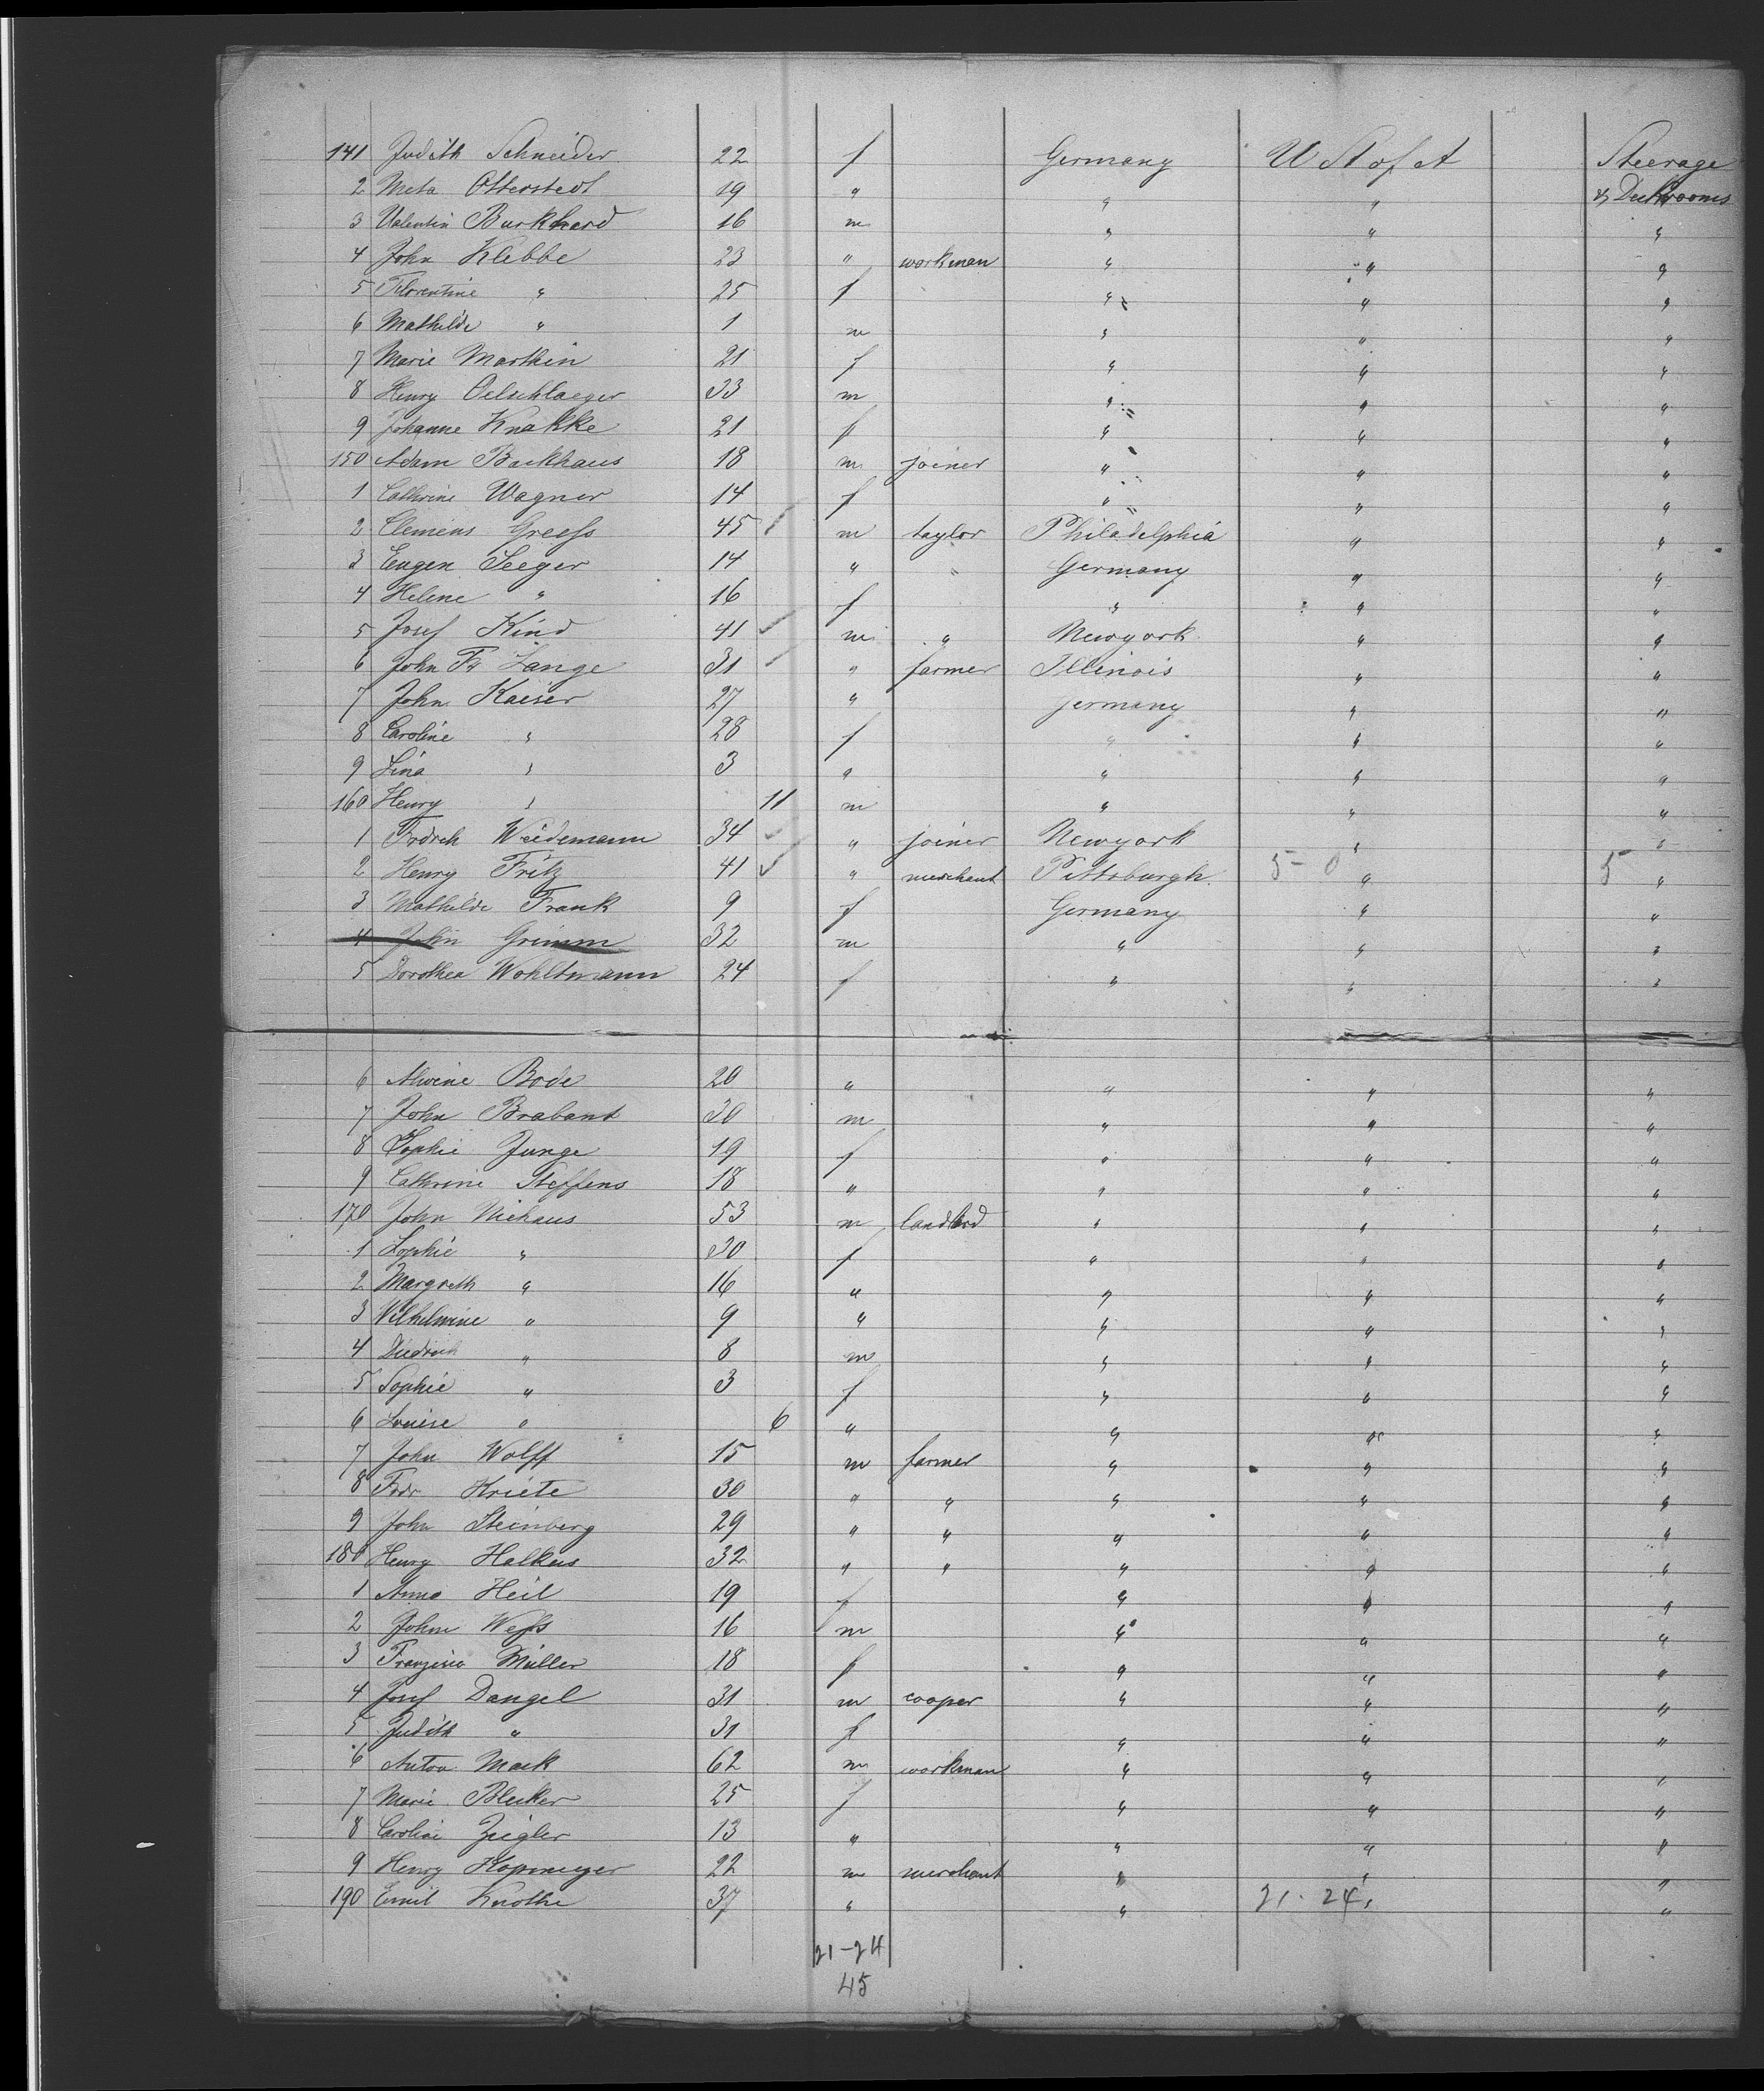 141 Judith Schneider 22 f Germany U St of A Steerage
2 Meta Otterstedt 19 " " " & Deckrooms
3 Valentin Burkhard 16 m " " "
4 John Klebbe 23 " workman " " "
5 Florentine " 25 f " " "
6 Mathilde " 1 m " " "
7 Marie Marthin 21 f " " "
8 Henry Oelschlaeger 33 m " " "
9 Johanne Knakke 21 f " " "
150 Adam Backhaus 18 m joiner " " "
1 Cathrine Wagner 14 f " " "
2 Clemens Greefs 45 m taylor Philadelphia " "
3 Eugen Seeger 14 " " Germany " "
4 Helene " 16 f " " "
5 Josef Kind 41 m " Newyork " "
6 John Fr Lange 31 " farmer Illinois " "
7 John Kaiser 27 " Germany " "
8 Caroline " 28 f " " "
9 Lina " 3 " " " "
160 Henry " 11 m " " "
1 Frdrch Weidemann 34 " joiner Newyork " "
2 Henry Fritz 41 " merchant Pittsburgh 5-0 " 5 "
3 Mathilde Frank 9 f Germany " "
4 John Grimm 32 m " " "
5 Dorothea Wohltmann 24 f " " "
6 Alwine Bode 20 " " " "
7 John Brabant 30 m " " "
8 Sophie Junge 19 f " " "
9 Cathrine Steffens 18 " " " "
170 John Niehaus 53 m landlord " " "
1 Sophie " 30 f " " "
2 Margreth " 16 " " " "
3 Wilhelmine " 9 " " " "
4 Diedrich " 8 m " " "
5 Sophie " 3 f " " "
6 Louise " 6 " " " "
7 John Wolff 15 m farmer " " "
8 Fr Kriete 30 " " " " "
9 John Steinberg 29 " " " " "
180 Henry Halkus 32 " " " " "
1 Anna Heil 19 f " " "
2 John Wefs 16 m " " "
3 Franzisca Müller 18 f " " "
4 Josef Dangel 31 m cooper " " "
5 Judith " 31 f " " "
6 Anton Mack 62 m workman " " "
7 Marie Bleeker 25 f " " "
8 Caroline Ziegler 13 " " " "
9 Henry Kopmeyer 22 m merchant " " "
190 Emil Knothe 37 " " 21-24 " "
21-24
45